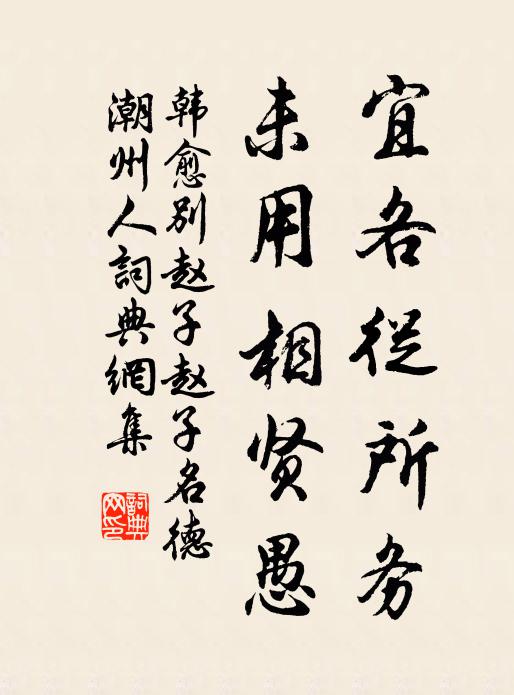 宜各從所务
未用相贤愚
韩愈别赵子赵子名德
潮州人詞典網集
詞典网印